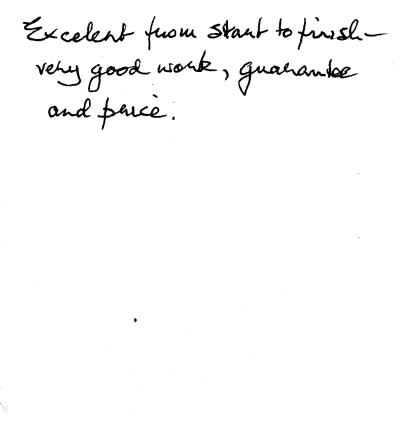 Excelent from start to finish—
very good work, guarantee
and price.